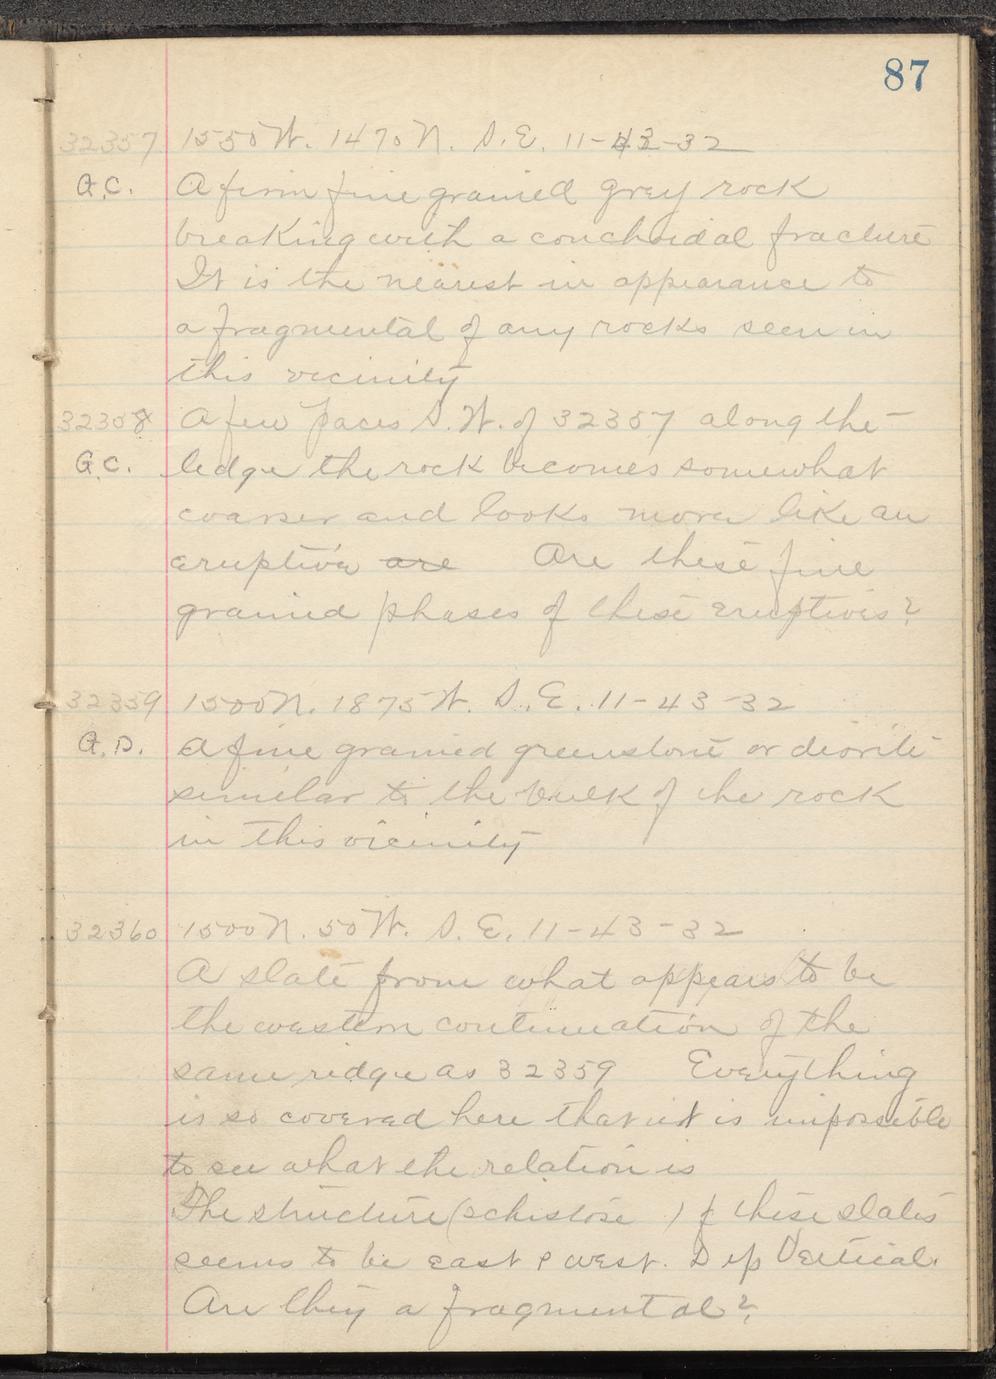 87
32357 1550 W. 1470 N. S.E. 11-43-32
G.C. A firm fine grained grey rock
breaking with a conchoidal fracture
It is the nearest in appearance to
a fragmental of any rocks seen in
this vicinity
32358 A few paces S.W. of 32357 along the
G.C. ledge the rock becomes somewhat
coarser and looks more like an
eruptive are Are these fine
grained phases of these eruptives?
32359 1500 N. 1875 W. S.E. 11-43-32
G.D. A fine grained greenstone or diorite
similar to the bulk of the rock
in this vicinity
32360 1500 N. 50 W. S.E. 11-43-32
A slate from what appears to be
the western continuation of the
same ridge as 32359 Everything
is so covered here that it is impossible
to see what the relation is
The structure (schistose ) of these slates
seems to be east & west. Dip Vertical.
Are they a fragmental?